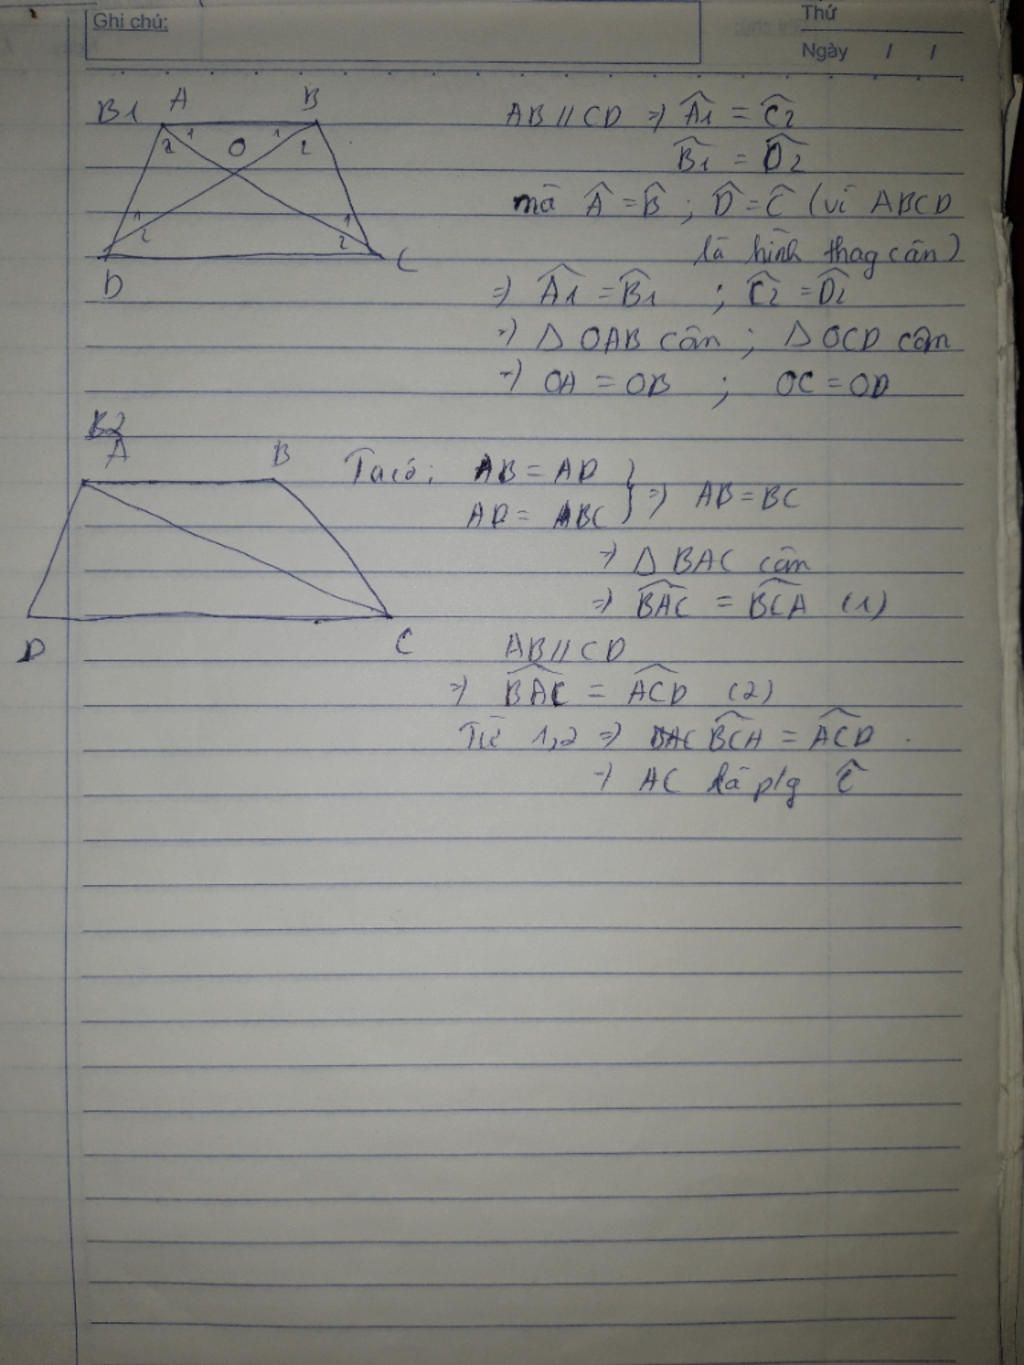 Ghi chú:
Thứ
Ngày / /
B1 A B
O
1 2 1 2
1 2 1 2
D C
AB // CD => Â1 = Ĉ2
B̂1 = D̂2
mà Â = B̂ ; D̂ = Ĉ (vì ABCD
là hình thag cân)
=> Â1 = B̂1 ; Ĉ2 = D̂2
=> △ OAB cân ; △ OCD cân
=> OA = OB ; OC = OD
B2
A B
D C
Ta có : AB = AD
AD = BC } => AB = BC
=> △ BAC cân
=> B̂AC = B̂CA (1)
AB // CD
=> B̂AC = ÂCD (2)
Từ 1,2 => B̂CA = ÂCD .
=> AC là p/g Ĉ